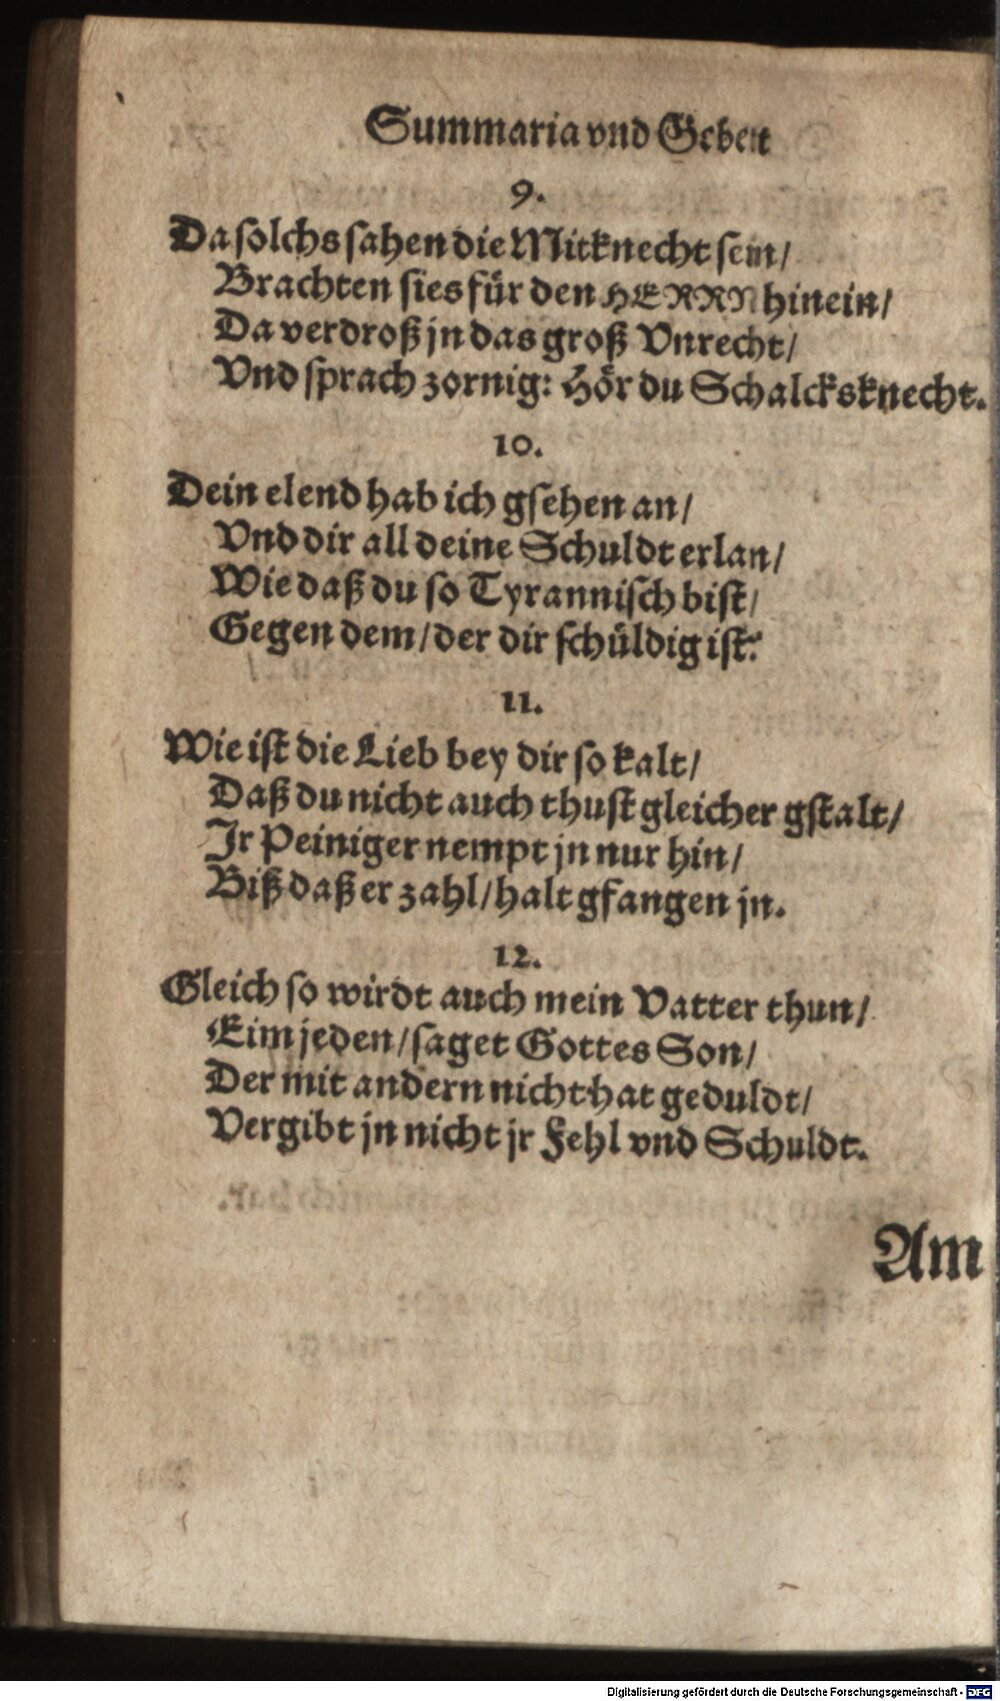 Summaria vnd Gebett
9.
Da solchs sahen die Mitknecht sein/
Brachten sies für den HERRN hinein/
Da verdroß jn das groß Vnrecht/
Vnd sprach zornig: Hör du Schalcksknecht.
10.
Dein elend hab ich gsehen an/
Vnd dir all deine Schuldt erlan/
Wie daß du so Tyrannisch bist/
Gegen dem/ der dir schüldig ist?
11.
Wie ist die Lieb bey dir so kalt/
Daß du nicht auch thust gleicher gstalt/
Jr Peiniger nempt jn nur hin/
Biß daß er zahl/ halt gfangen jn.
12.
Gleich so wirdt auch mein Vatter thun/
Eim jeden/ saget Gottes Son/
Der mit andern nicht hat geduldt/
Vergibt jn nicht jr Fehl vnd Schuldt.
Am
Digitalisierung gefördert durch die Deutsche Forschungsgemeinschaft - DFG